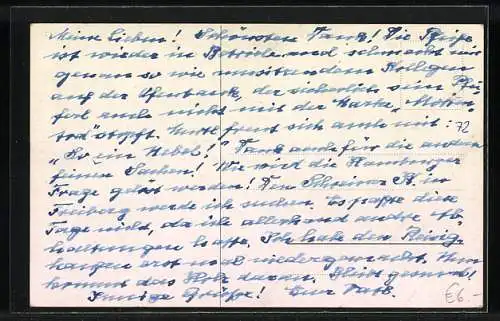 Meine Lieben! Schönsten Dank! Die Pfeife
ist wieder in Betrieb und schmeckt mir
genau so wie umsitzendem Kollegen
auf der Ofenbank, der sicherlich sein Pfei-
ferl auch nicht mit der Marke "Motten-
tod" stopft. freut sich auch mit:
"So ein Nebel!" Dank auch für die andern
feinen Sachen! Wie wird die Hamburger
Frage gelöst werden! Den Schreiner St. in
Freiberg werde ich suchen. Es paßte diese
Tage nicht, da ich allerhand andre Ab-
haltungen hatte. Ich habe den Reisig-
haufen erst mal niedergemacht. Nun
kommt das Holz daran. Bleibt gesund!
Innige Grüße! Euer Vater.
72
£6.-